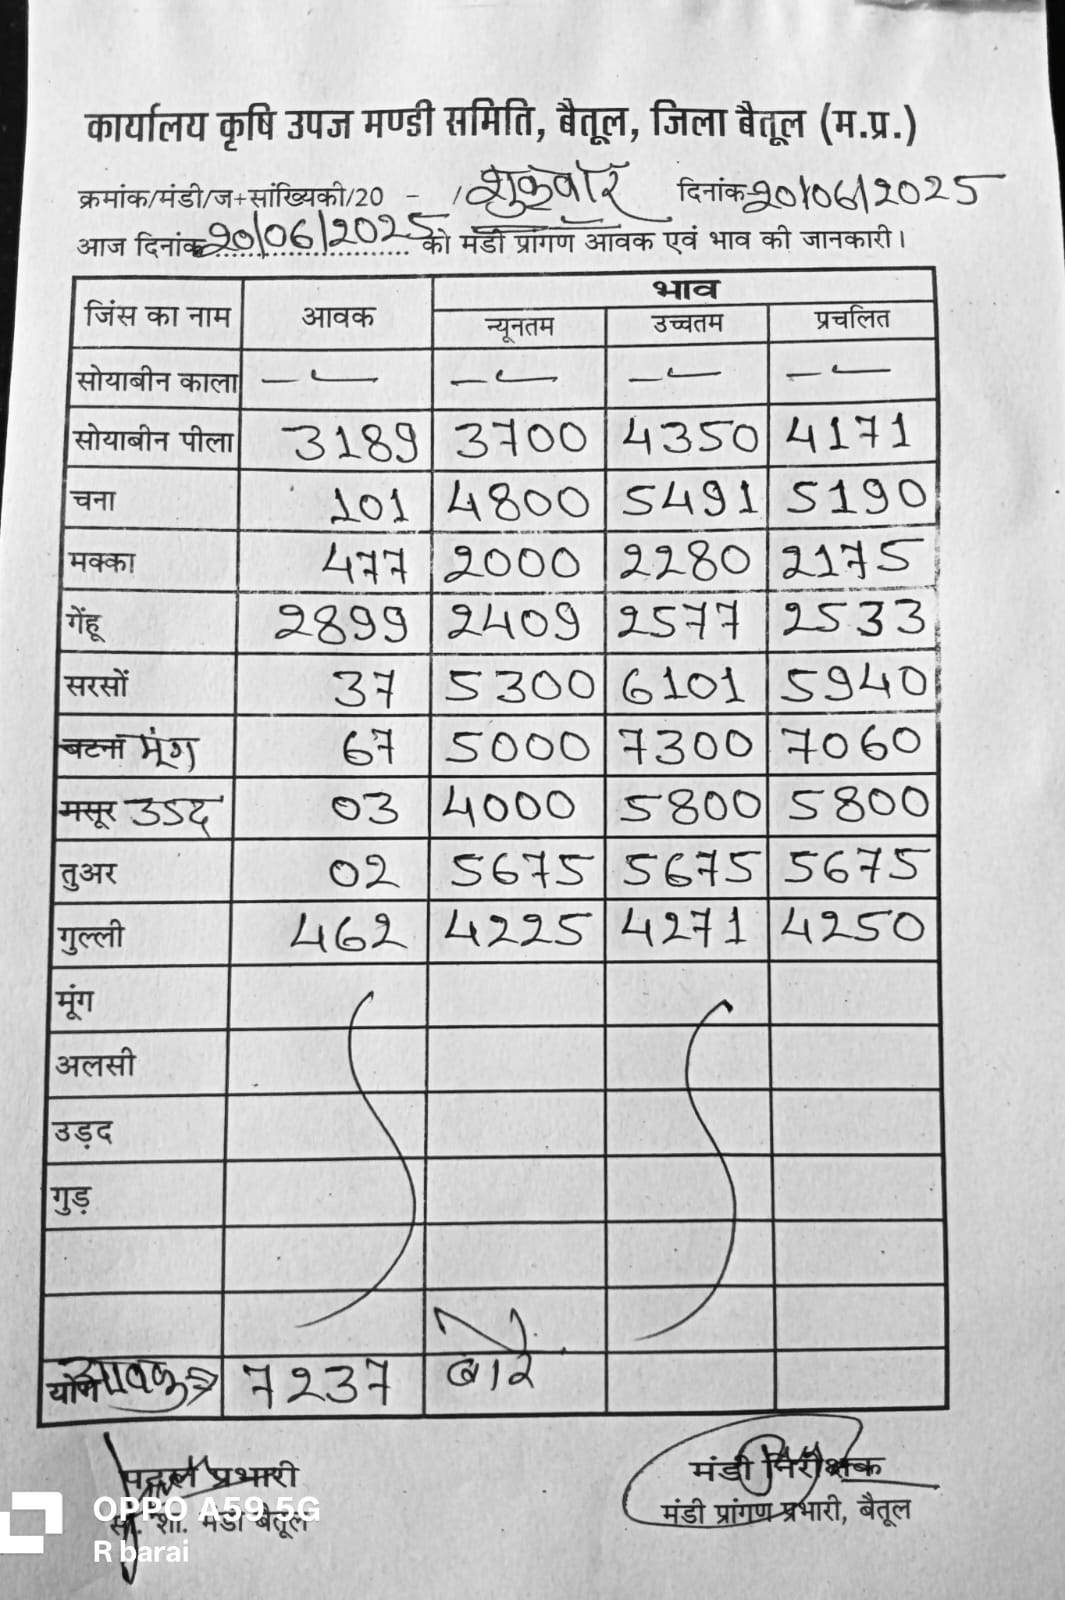 कार्यालय कृषि उपज मण्डी समिति, बैतूल, जिला बैतूल (म.प्र.)
क्रमांक/मंडी/ज+सांख्यिकी/20 - / शुक्रवार दिनांक 20/06/2025
आज दिनांक 20/06/2025 को मंडी प्रांगण आवक एवं भाव की जानकारी।
जिंस का नाम आवक भाव
न्यूनतम उच्चतम प्रचलित
सोयाबीन काला — — — —
सोयाबीन पीला 3189 3700 4350 4171
चना 101 4800 5491 5190
मक्का 477 2000 2280 2175
गेंहू 2899 2409 2577 2533
सरसों 37 5300 6101 5940
बटना मूंग 67 5000 7300 7060
मसूर उड़द 03 4000 5800 5800
तुअर 02 5675 5675 5675
गुल्ली 462 4225 4271 4250
मूंग
अलसी
उड़द
गुड़
योग आवक → 7237 बोरे
प्रभारी मंडी निरीक्षक
शा. मंडी बैतूल मंडी प्रांगण प्रभारी, बैतूल
OPPO A59 5G
R barai